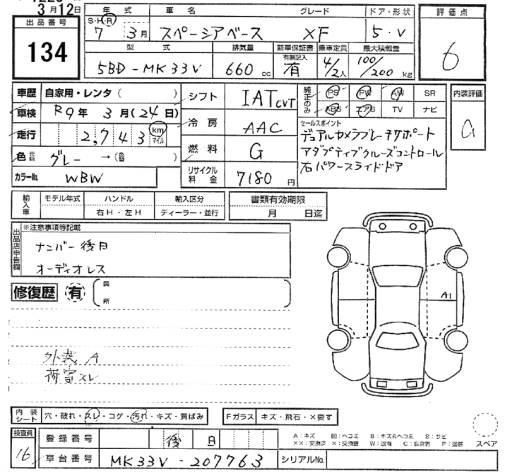 3月12日
出品番号
134
S・H・R 年 車名 グレード ドア・形状
7 3月 スペーシアベース XF 5・V
型式 排気量 新車保証書 乗車定員 最大積載量
5BD-MK33V 660cc 有 4/2人 100/200kg
評価点
6
車歴 自家用・レンタ
車検 R9年3月(24日)
走行 2,743 km マイル
色 グレー→
カラーNo. WBW
シフト IAT CVT
冷房 AAC
燃料 G
リサイクル料金 7180円
純正のみ PS PW AW SR
ABS エアB TV ナビ
セールスポイント
デュアルカメラブレーキサポート
アダプティブクルーズコントロール
右パワースライドドア
内装評価
a
輸入車 モデル年式 ハンドル 輸入区分
右H・左H ディーラー・並行
書類有効期限
月 日迄
出品店申告欄
※注意事項等記載
ナンバー後日
オーディオレス
修復歴 有
箇所
外装A
荷室スレ
A1
内装シート 穴・破れ・スレ・コゲ・汚れ・キズ・黄ばみ
Fガラス キズ・飛石・×要す
スペア
検査員
16
登録番号 後日
車台番号 MK33V-207763
シリアルNo.